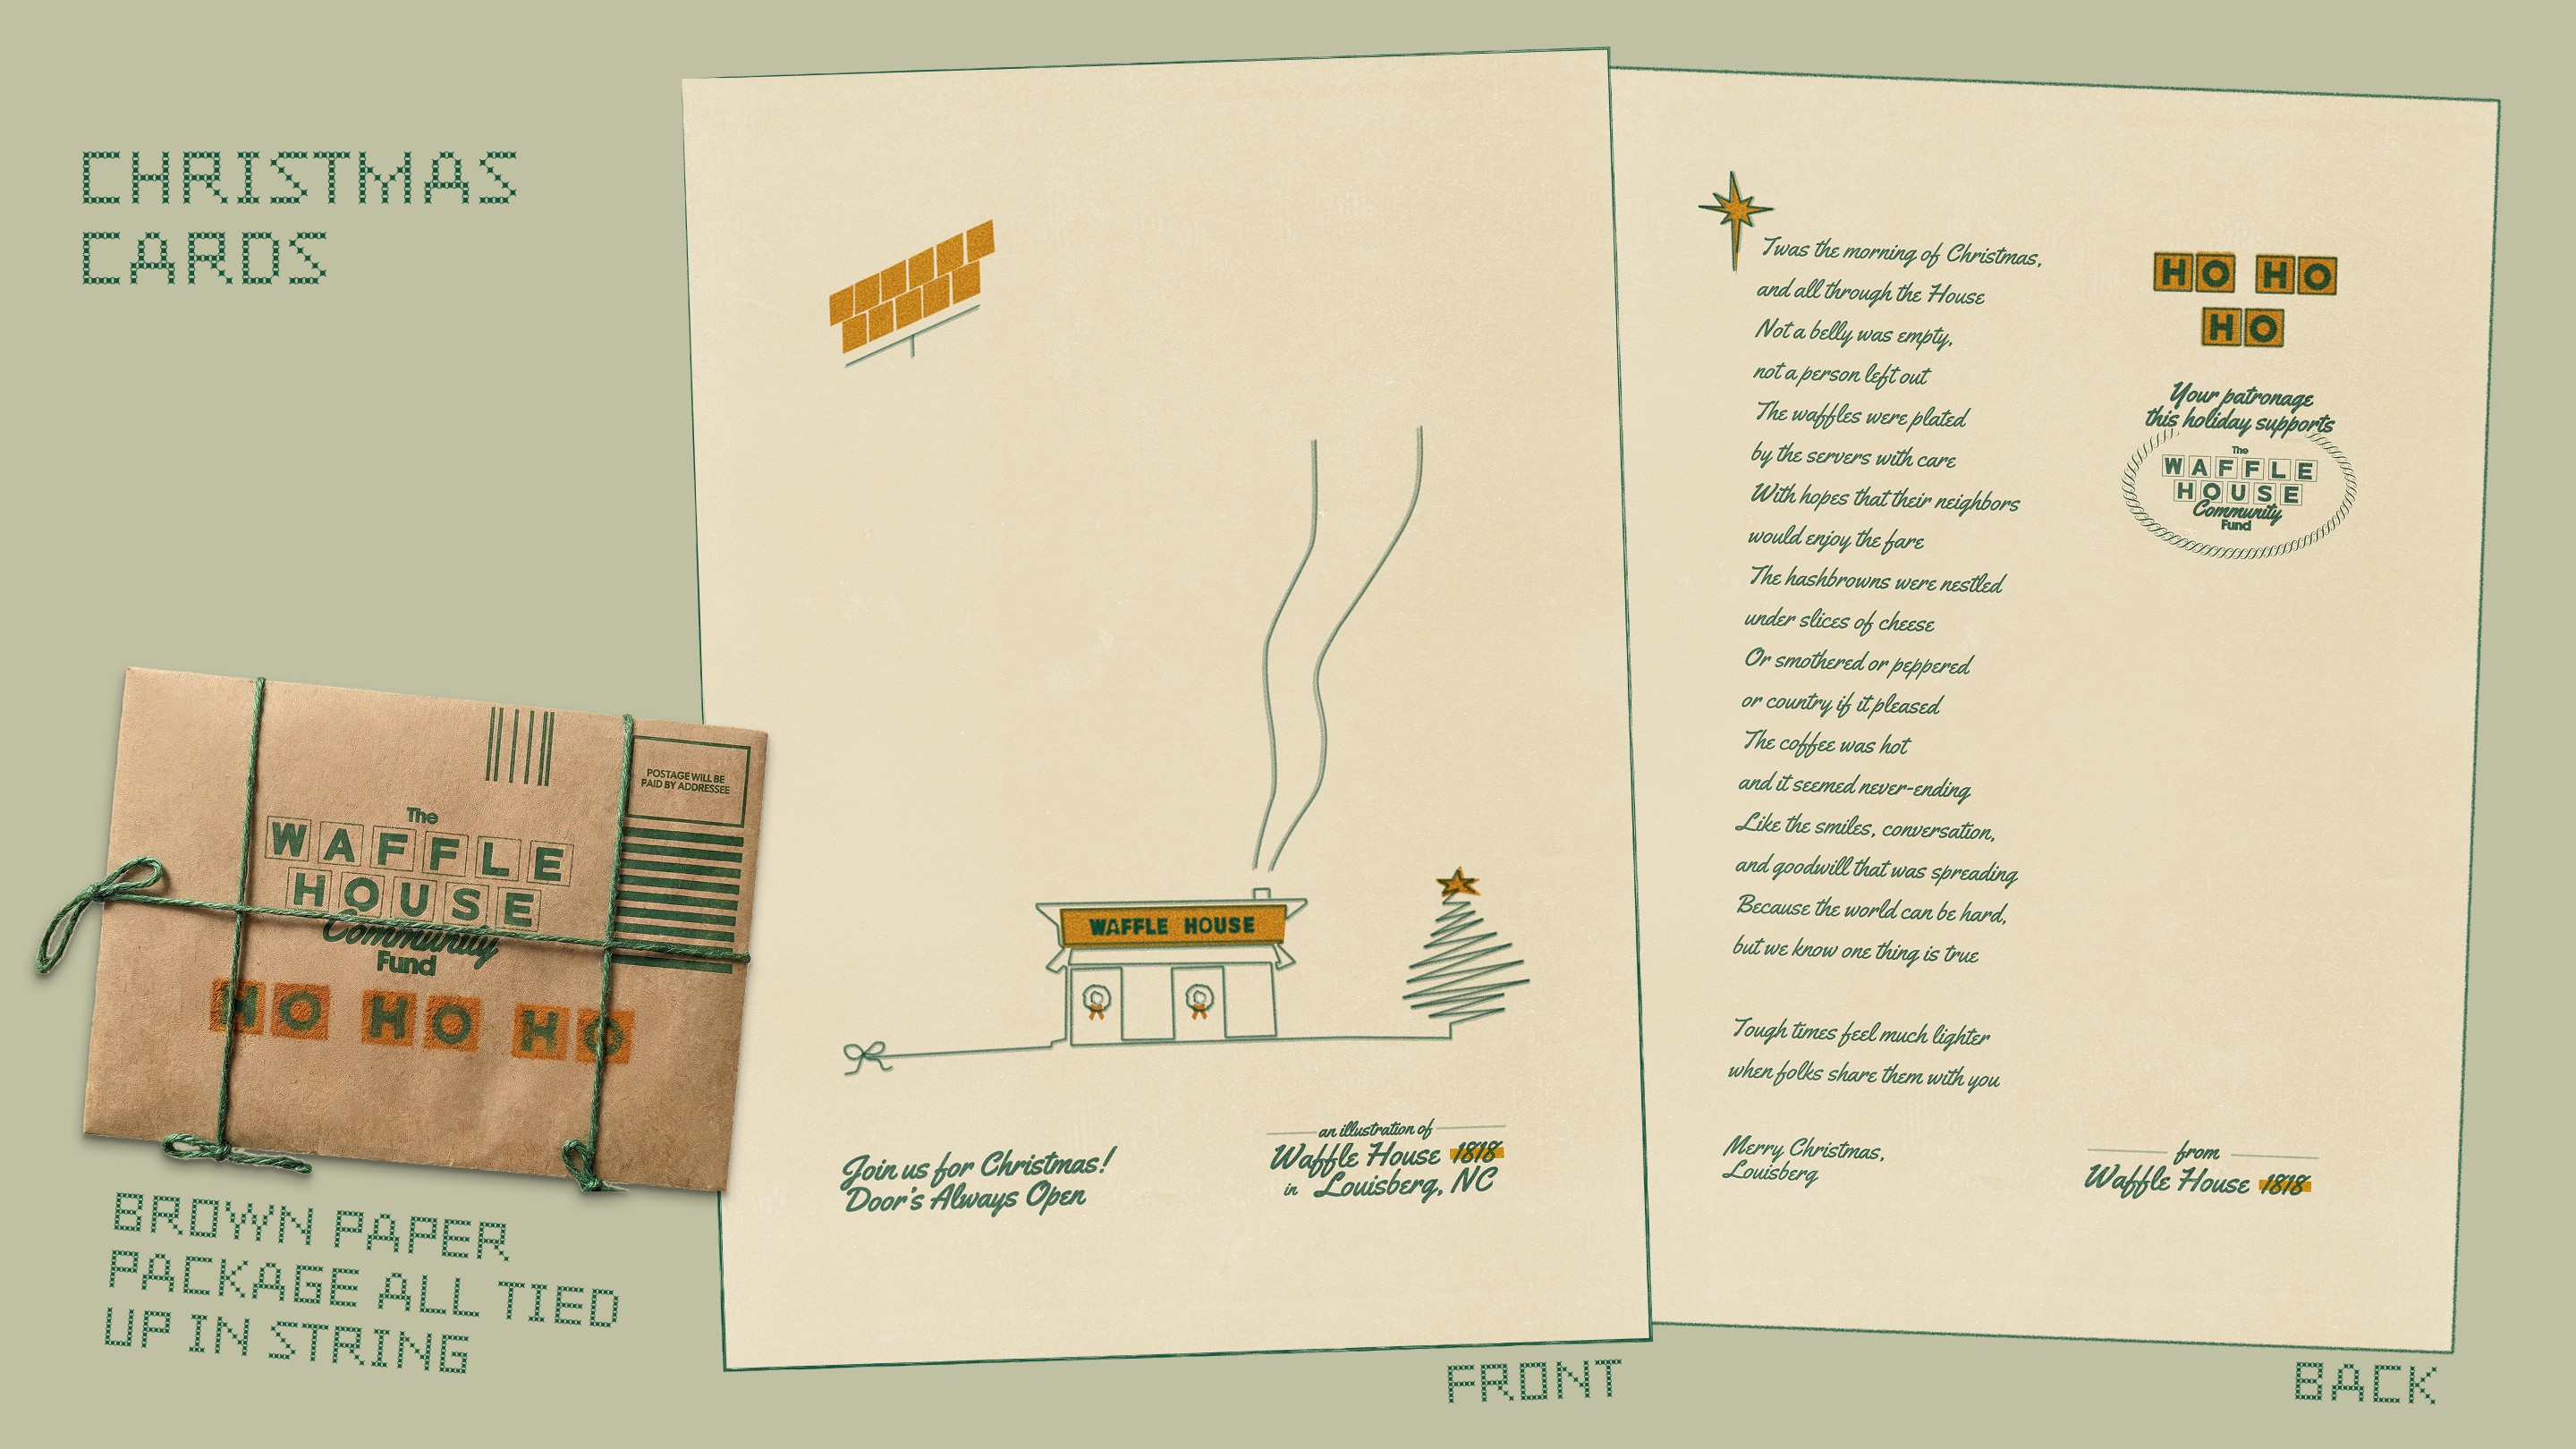 CHRISTMAS
CARDS
POSTAGE WILL BE
PAID BY ADDRESSEE
The
WAFFLE
HOUSE
Community
Fund
HO HO HO
BROWN PAPER
PACKAGE ALL TIED
UP IN STRING
WAFFLE HOUSE
Join us for Christmas!
Door's Always Open
an illustration of
Waffle House 1818
in Louisberg, NC
FRONT
Twas the morning of Christmas,
and all through the House
Not a belly was empty,
not a person left out
The waffles were plated
by the servers with care
With hopes that their neighbors
would enjoy the fare
The hashbrowns were nestled
under slices of cheese
Or smothered or peppered
or country if it pleased
The coffee was hot
and it seemed never-ending
Like the smiles, conversation,
and goodwill that was spreading
Because the world can be hard,
but we know one thing is true
Tough times feel much lighter
when folks share them with you
Merry Christmas,
Louisberg
HO HO
HO
Your patronage
this holiday supports
The
WAFFLE
HOUSE
Community
Fund
from
Waffle House 1818
BACK